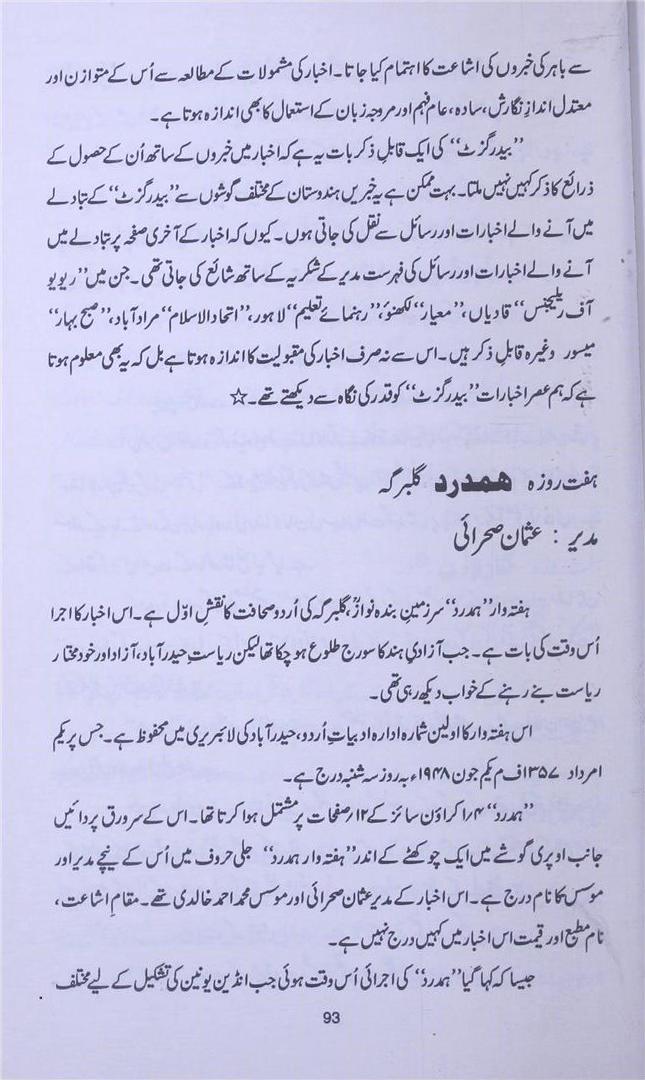 سے باہر کی خبروں کی اشاعت کا اہتمام کیا جاتا۔ اخبار کی مشمولات کے مطالعہ سے اُس کے متوازن اور
معتدل اندازِ نگارش، سادہ، عام فہم اور مروجہ زبان کے استعمال کا بھی اندازہ ہوتا ہے۔
”بیدر گزٹ“ کی ایک قابلِ ذکر بات یہ ہے کہ اخبار میں خبروں کے ساتھ اُن کے حصول کے
ذرائع کا ذکر کہیں نہیں ملتا۔ بہت ممکن ہے یہ خبریں ہندوستان کے مختلف گوشوں سے ”بیدر گزٹ“ کے تبادلے
میں آنے والے اخبارات اور رسائل سے نقل کی جاتی ہوں۔ کیوں کہ اخبار کے آخری صفحہ پر تبادلے میں
آنے والے اخبارات اور رسائل کی فہرست مدیر کے شکریہ کے ساتھ شائع کی جاتی تھی۔ جن میں ”ریویو
آف ریلیجنس“ قادیاں، ”معیار“ لکھنؤ، ”رہنمائے تعلیم“ لاہور، ”اتحاد الاسلام“ مرادآباد، ”صبح بہار“
میسور وغیرہ قابلِ ذکر ہیں۔ اس سے نہ صرف اخبار کی مقبولیت کا اندازہ ہوتا ہے بل کہ یہ بھی معلوم ہوتا
ہے کہ ہم عصر اخبارات ”بیدر گزٹ“ کو قدر کی نگاہ سے دیکھتے تھے۔ ☆
ہفت روزہ ہمدرد گلبرگہ
مدیر : عثمان صحرائی
ہفتہ وار ”ہمدرد“ سرزمینِ بندہ نوازؒ، گلبرگہ کی اُردو صحافت کا نقشِ اوّل ہے۔ اس اخبار کا اجرا
اُس وقت کی بات ہے۔ جب آزادیِ ہند کا سورج طلوع ہوچکا تھا لیکن ریاستِ حیدرآباد، آزاد اور خودمختار
ریاست بنے رہنے کے خواب دیکھ رہی تھی۔
اس ہفتہ وار کا اولین شمارہ ادارہ ادبیاتِ اُردو، حیدرآباد کی لائبریری میں محفوظ ہے۔ جس پر یکم
امرداد ۱۳۵۷ف م یکم جون ۱۹۴۸ء بہ روز سہ شنبہ درج ہے۔
”ہمدرد“ ۱/۴ کراؤن سائز کے ۱۲/صفحات پر مشتمل ہوا کرتا تھا۔ اس کے سرورق پر دائیں
جانب اوپری گوشے میں ایک چوکھٹے کے اندر ”ہفتہ وار ہمدرد“ جلی حروف میں اُس کے نیچے مدیر اور
موسس کا نام درج ہے۔ اس اخبار کے مدیر عثمان صحرائی اور موسس محمد احمد خالدی تھے۔ مقامِ اشاعت،
نام مطبع اور قیمت اس اخبار میں کہیں درج نہیں ہے۔
جیسا کہ کہا گیا ”ہمدرد“ کی اجرائی اُس وقت ہوئی جب انڈین یونین کی تشکیل کے لیے مختلف
93